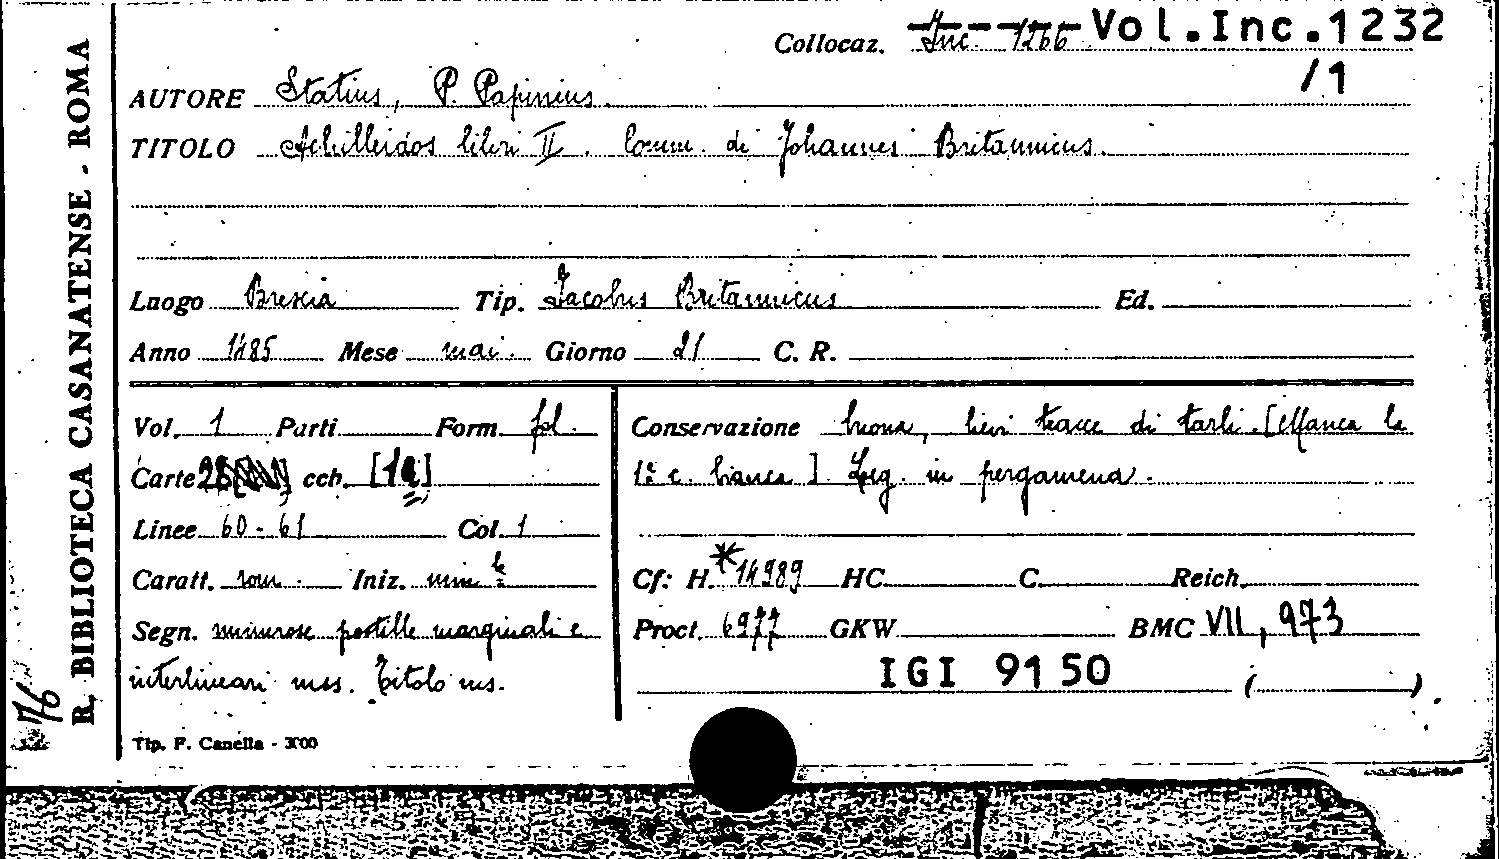 R. BIBLIOTECA CASANATENSE - ROMA
76
Collocaz. Inc. 1266 Vol.Inc.1232
/1
AUTORE Statius, P. Papinius.
TITOLO Achilleidos libri II. Comm. di Johannes Britannicus.
Luogo Brescia Tip. Jacobus Britannicus Ed.
Anno 1485 Mese mai. Giorno 21 C. R.
Vol. 1 Parti Form. fol.
Carte 28 cch. [1a]
Linee 60-61 Col. 1
Caratt. rom. Iniz. min.
Segn. numerose postille marginali e
interlineari mss. Titolo ms.
Conservazione buona, lievi tracce di tarli. [Manca la
1ª c. bianca]. Leg. in pergamena.
Cf: H. *14989 HC. C. Reich.
Proct. 6977 GKW BMC VII, 973
IGI 9150 ( ).
Tip. F. Canella - 3000